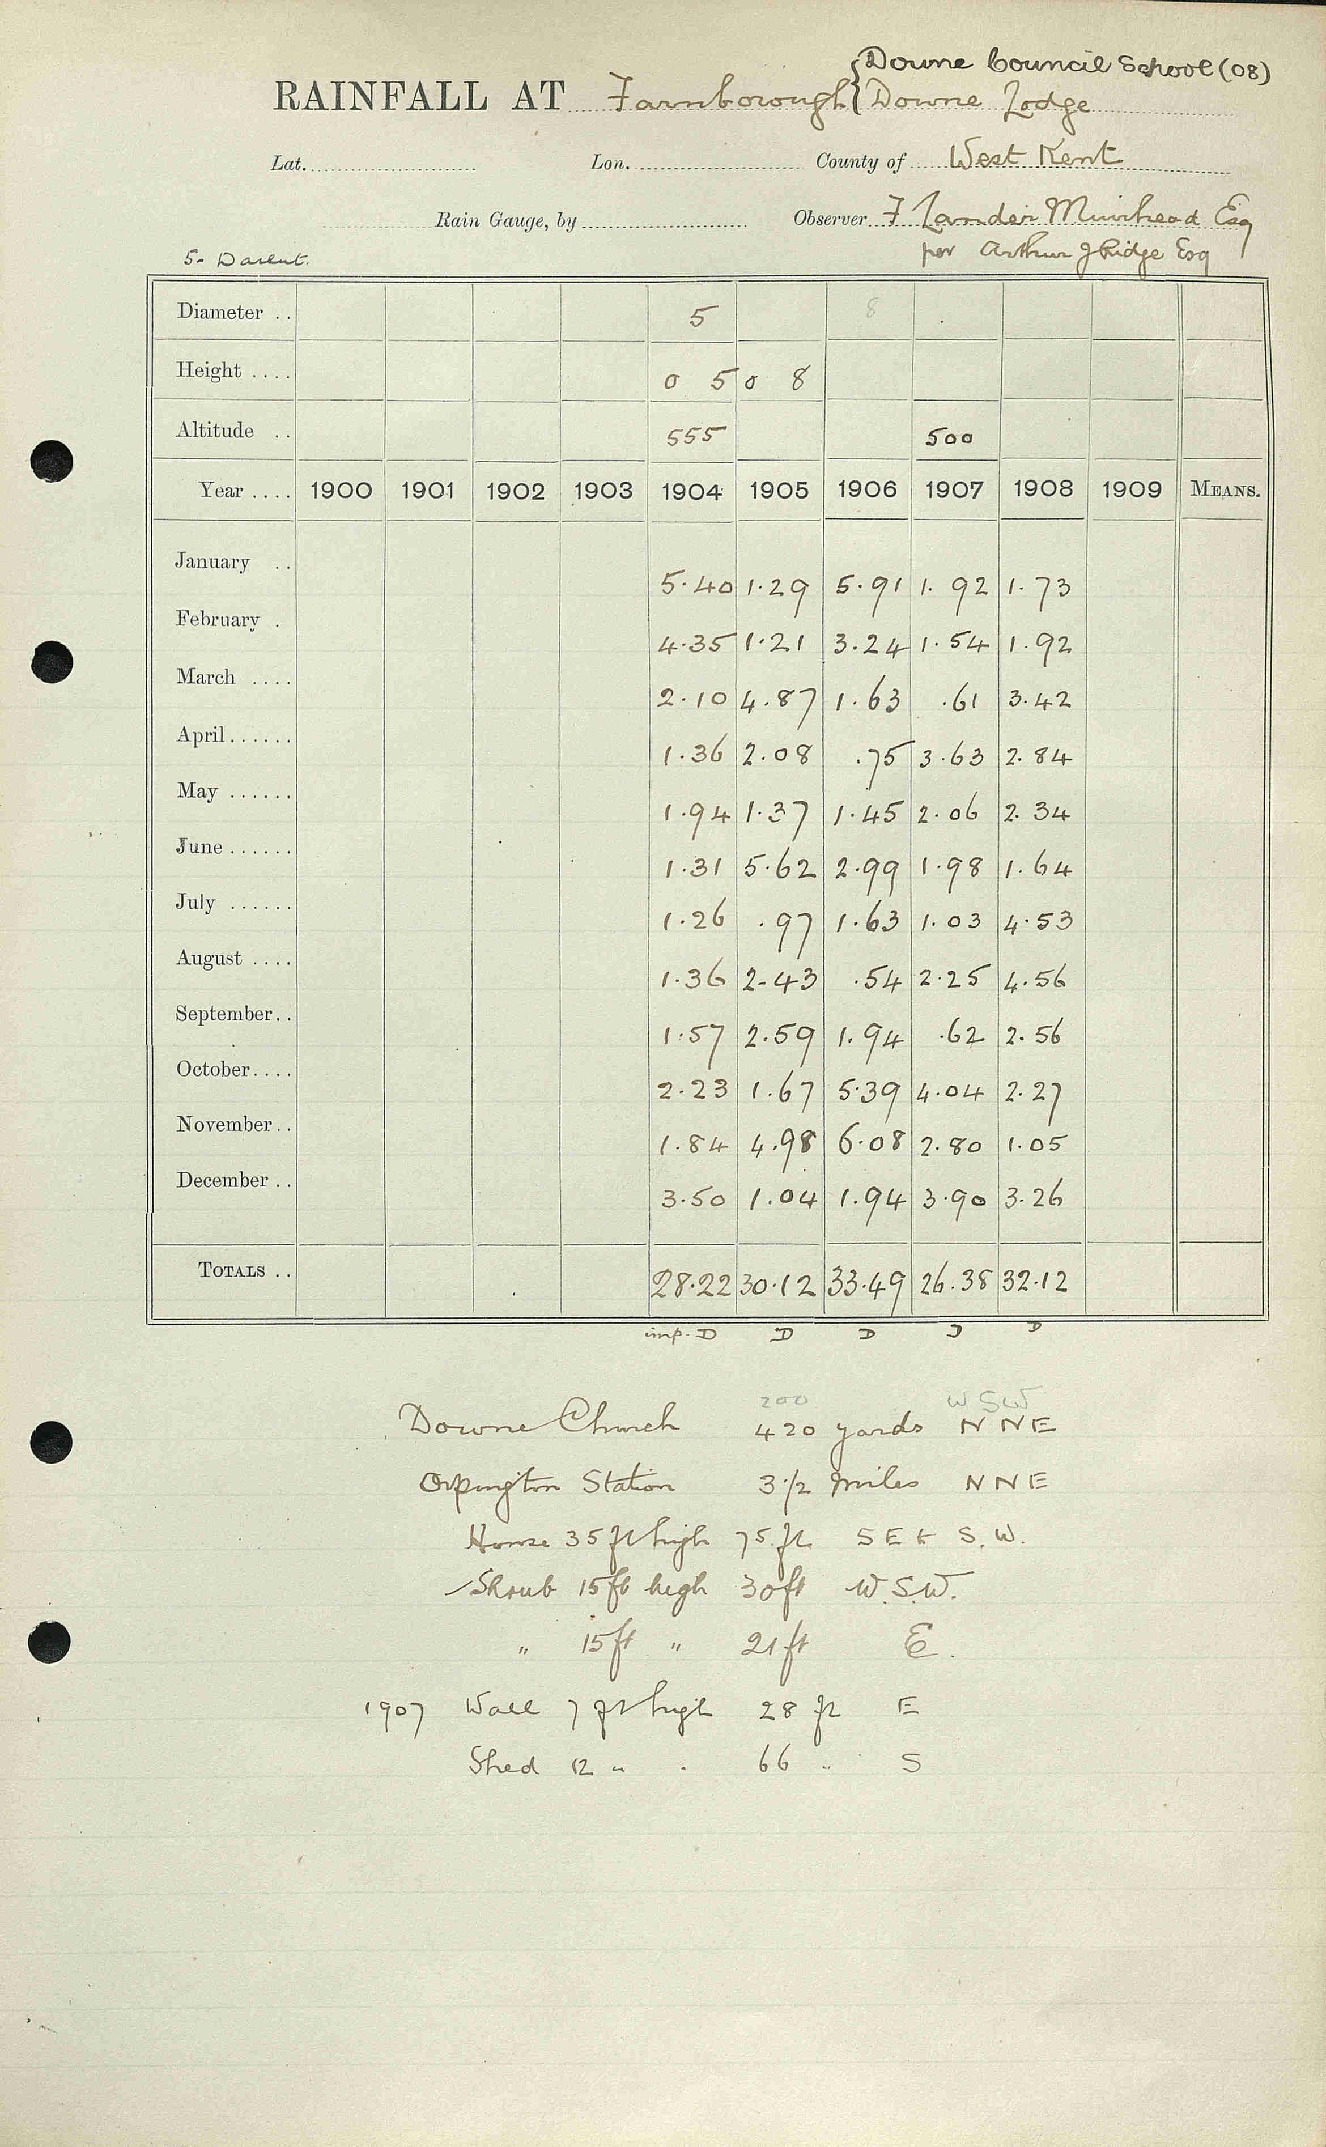 Downe Council School (08)
RAINFALL AT Farnborough { Downe Lodge
Lat. Lon. County of West Kent
Rain Gauge, by Observer F Lander Muirhead Esq
5- Darent. per Arthur J Ridge Esq
Diameter .. 5 8
Height .... 0 5 0 8
Altitude .. 555 500
Year .... 1900 1901 1902 1903 1904 1905 1906 1907 1908 1909 MEANS.
January .. 5.40 1.29 5.91 1.92 1.73
February . 4.35 1.21 3.24 1.54 1.92
March .... 2.10 4.87 1.63 .61 3.42
April...... 1.36 2.08 .75 3.63 2.84
May ...... 1.94 1.37 1.45 2.06 2.34
June...... 1.31 5.62 2.99 1.98 1.64
July ...... 1.26 .97 1.63 1.03 4.53
August .... 1.36 2-43 .54 2.25 4.56
September.. 1.57 2.59 1.94 .62 2.56
October.... 2.23 1.67 5.39 4.04 2.27
November.. 1.84 4.98 6.08 2.80 1.05
December .. 3.50 1.04 1.94 3.90 3.26
TOTALS .. 28.22 30.12 33.49 26.38 32.12
imp. D D D D D
200 WSW
Downe Church 420 yards NNE
Orpington Station 3 1/2 miles NNE
House 35 ft high 75 ft SE & S.W.
Shrub 15ft high 30ft W.S.W.
" 15ft " 21 ft E.
1907 Wall 7 ft high 28 ft E
Shed 12 " . 66 " S